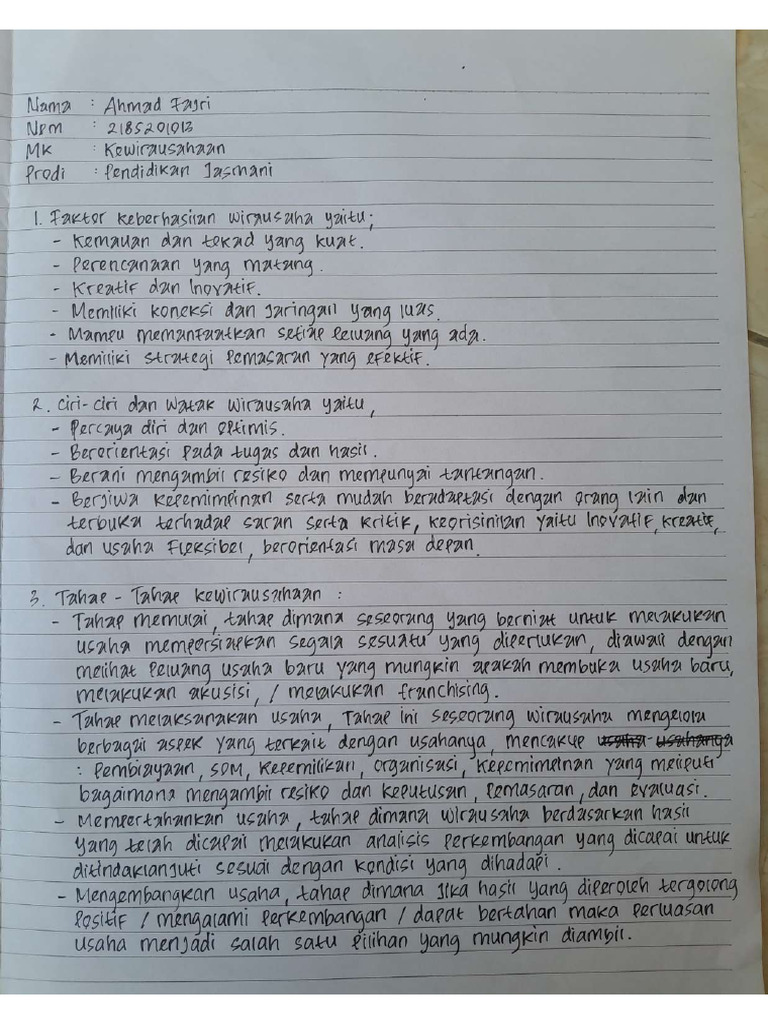 Nama : Ahmad Fajri
Npm : 2185201013
MK : Kewirausahaan
Prodi : Pendidikan Jasmani
1. Faktor keberhasilan wirausaha yaitu;
- Kemauan dan tekad yang kuat.
- Perencanaan yang matang.
- Kreatif dan Inovatif.
- Memiliki koneksi dan jaringan yang luas.
- Mampu memanfaatkan setiap peluang yang ada.
- Memiliki strategi pemasaran yang efektif.
2. Ciri-ciri dan watak wirausaha yaitu,
- Percaya diri dan optimis.
- Berorientasi pada tugas dan hasil.
- Berani mengambil resiko dan mempunyai tantangan.
- Berjiwa kepemimpinan serta mudah beradaptasi dengan orang lain dan
terbuka terhadap saran serta kritik, keorisinilan yaitu Inovatif, kreatif,
dan usaha Fleksibel, berorientasi masa depan.
3. Tahap - Tahap kewirausahaan :
- Tahap memulai, tahap dimana seseorang yang berniat untuk melakukan
usaha mempersiapkan segala sesuatu yang diperlukan, diawali dengan
melihat peluang usaha baru yang mungkin apakah membuka usaha baru,
melakukan akusisi, / melakukan franchising.
- Tahap melaksanakan usaha, Tahap ini seseorang wirausaha mengelola
berbagai aspek yang terkait dengan usahanya, mencakup usaha-usahanya
: Pembiayaan, SDM, Kepemilikan, organisasi, Kepemimpinan yang meliputi
bagaimana mengambil resiko dan keputusan, pemasaran, dan evaluasi.
- Mempertahankan usaha, tahap dimana wirausaha berdasarkan hasil
yang telah dicapai melakukan analisis perkembangan yang dicapai untuk
ditindaklanjuti sesuai dengan kondisi yang dihadapi.
- Mengembangkan usaha, tahap dimana jika hasil yang diperoleh tergolong
positif / mengalami perkembangan / dapat bertahan maka perluasan
usaha menjadi salah satu pilihan yang mungkin diambil.